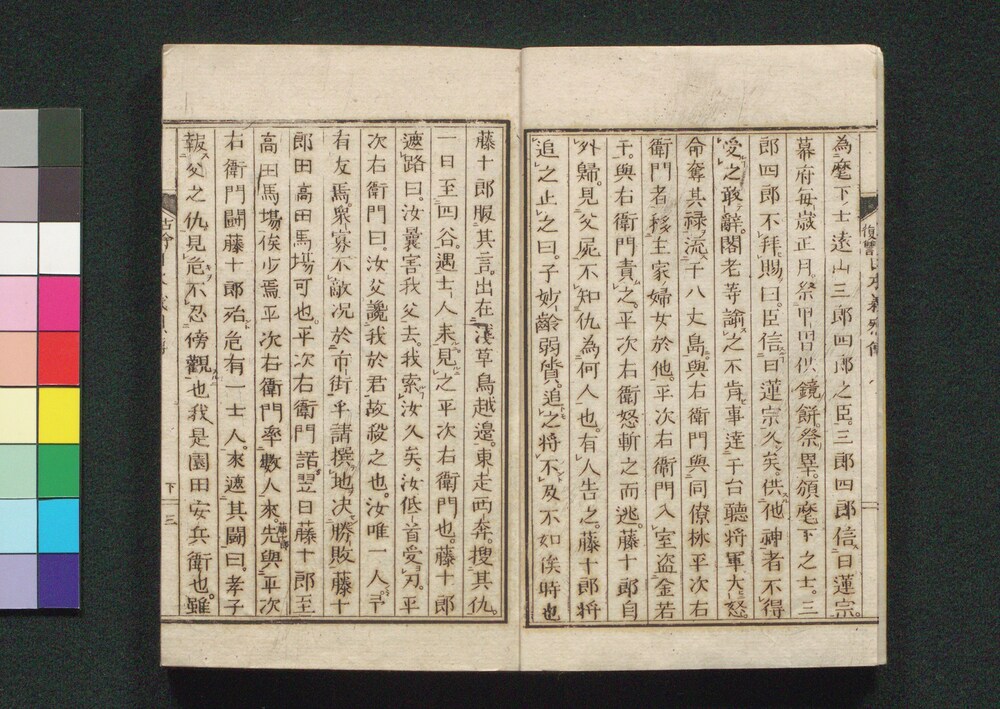 為麾下士遠山三郎四郎之臣。三郎四郎信日蓮宗。
幕府每歲正月。祭甲冑供鏡餅。祭畢。頒麾下之士。三
郎四郎不拜賜曰。臣信日蓮宗久矣。供他神者不得
受之。敢辭。閣老等諭之不肯。事達于台聽。將軍大怒。
命奪其祿。流于八丈島。與右衛門與同僚林平次右
衛門者移主家婦女於他。平次右衛門入室盗金若
干。與右衛門責之。平次右衛怒斬之而逃。藤十郎自
外歸。見父屍不知仇為何人也。有人告之。藤十郎將
追之。止之曰。子妙齡弱質。追之將不及。不如俟時也
藤十郎服其言。出在淺草鳥越邊。東走西奔。搜其仇。
一日至四谷。遇士人來。見之平次右衛門也。藤十郎
遮路曰。汝曩害我父去。我索汝久矣。汝低首受刃。平
次右衛門曰。汝父讒我於君。故殺之也。汝唯一人。予
有友焉。衆寡不敵。況於市街乎。請撰地決勝敗。藤十
郎曰高田馬場可也。平次右衛門諾。翌日藤十郎至
高田馬場俟少焉。平次右衛門率數人來。先與平次
右衛門鬪。藤十郎殆危。有一士人。來遮其鬪曰。孝子
報父之仇。見危不忍傍觀也。我是園田安兵衛也。雖
下 三